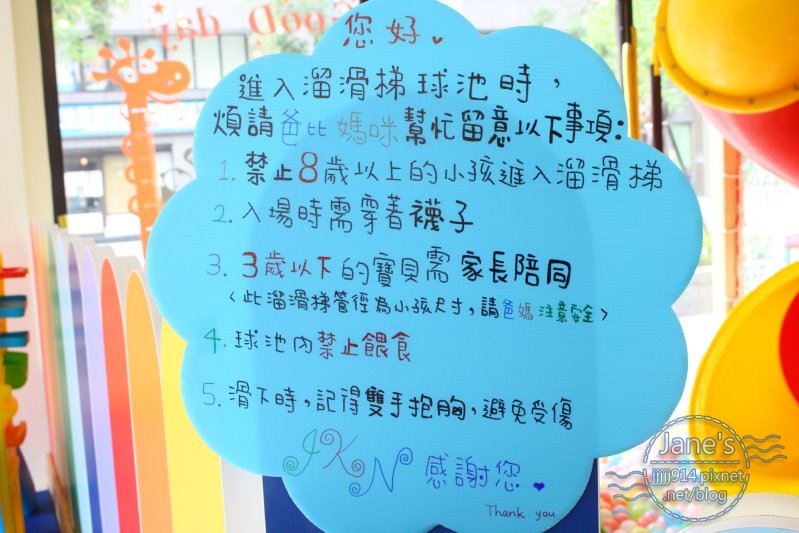 GOOD day
您好
進入溜滑梯球池時，
煩請爸比媽咪幫忙留意以下事項:
1. 禁止8歲以上的小孩進入溜滑梯
2. 入場時需穿著襪子
3. 3歲以下的寶貝需家長陪同
<此溜滑梯管徑為小孩尺寸，請爸媽注意安全>
4. 球池內禁止餵食
5. 滑下時，記得雙手抱胸，避免受傷
JKN 感謝您
Thank you
Jane's
jjjjj914.pixnet
.net/blog